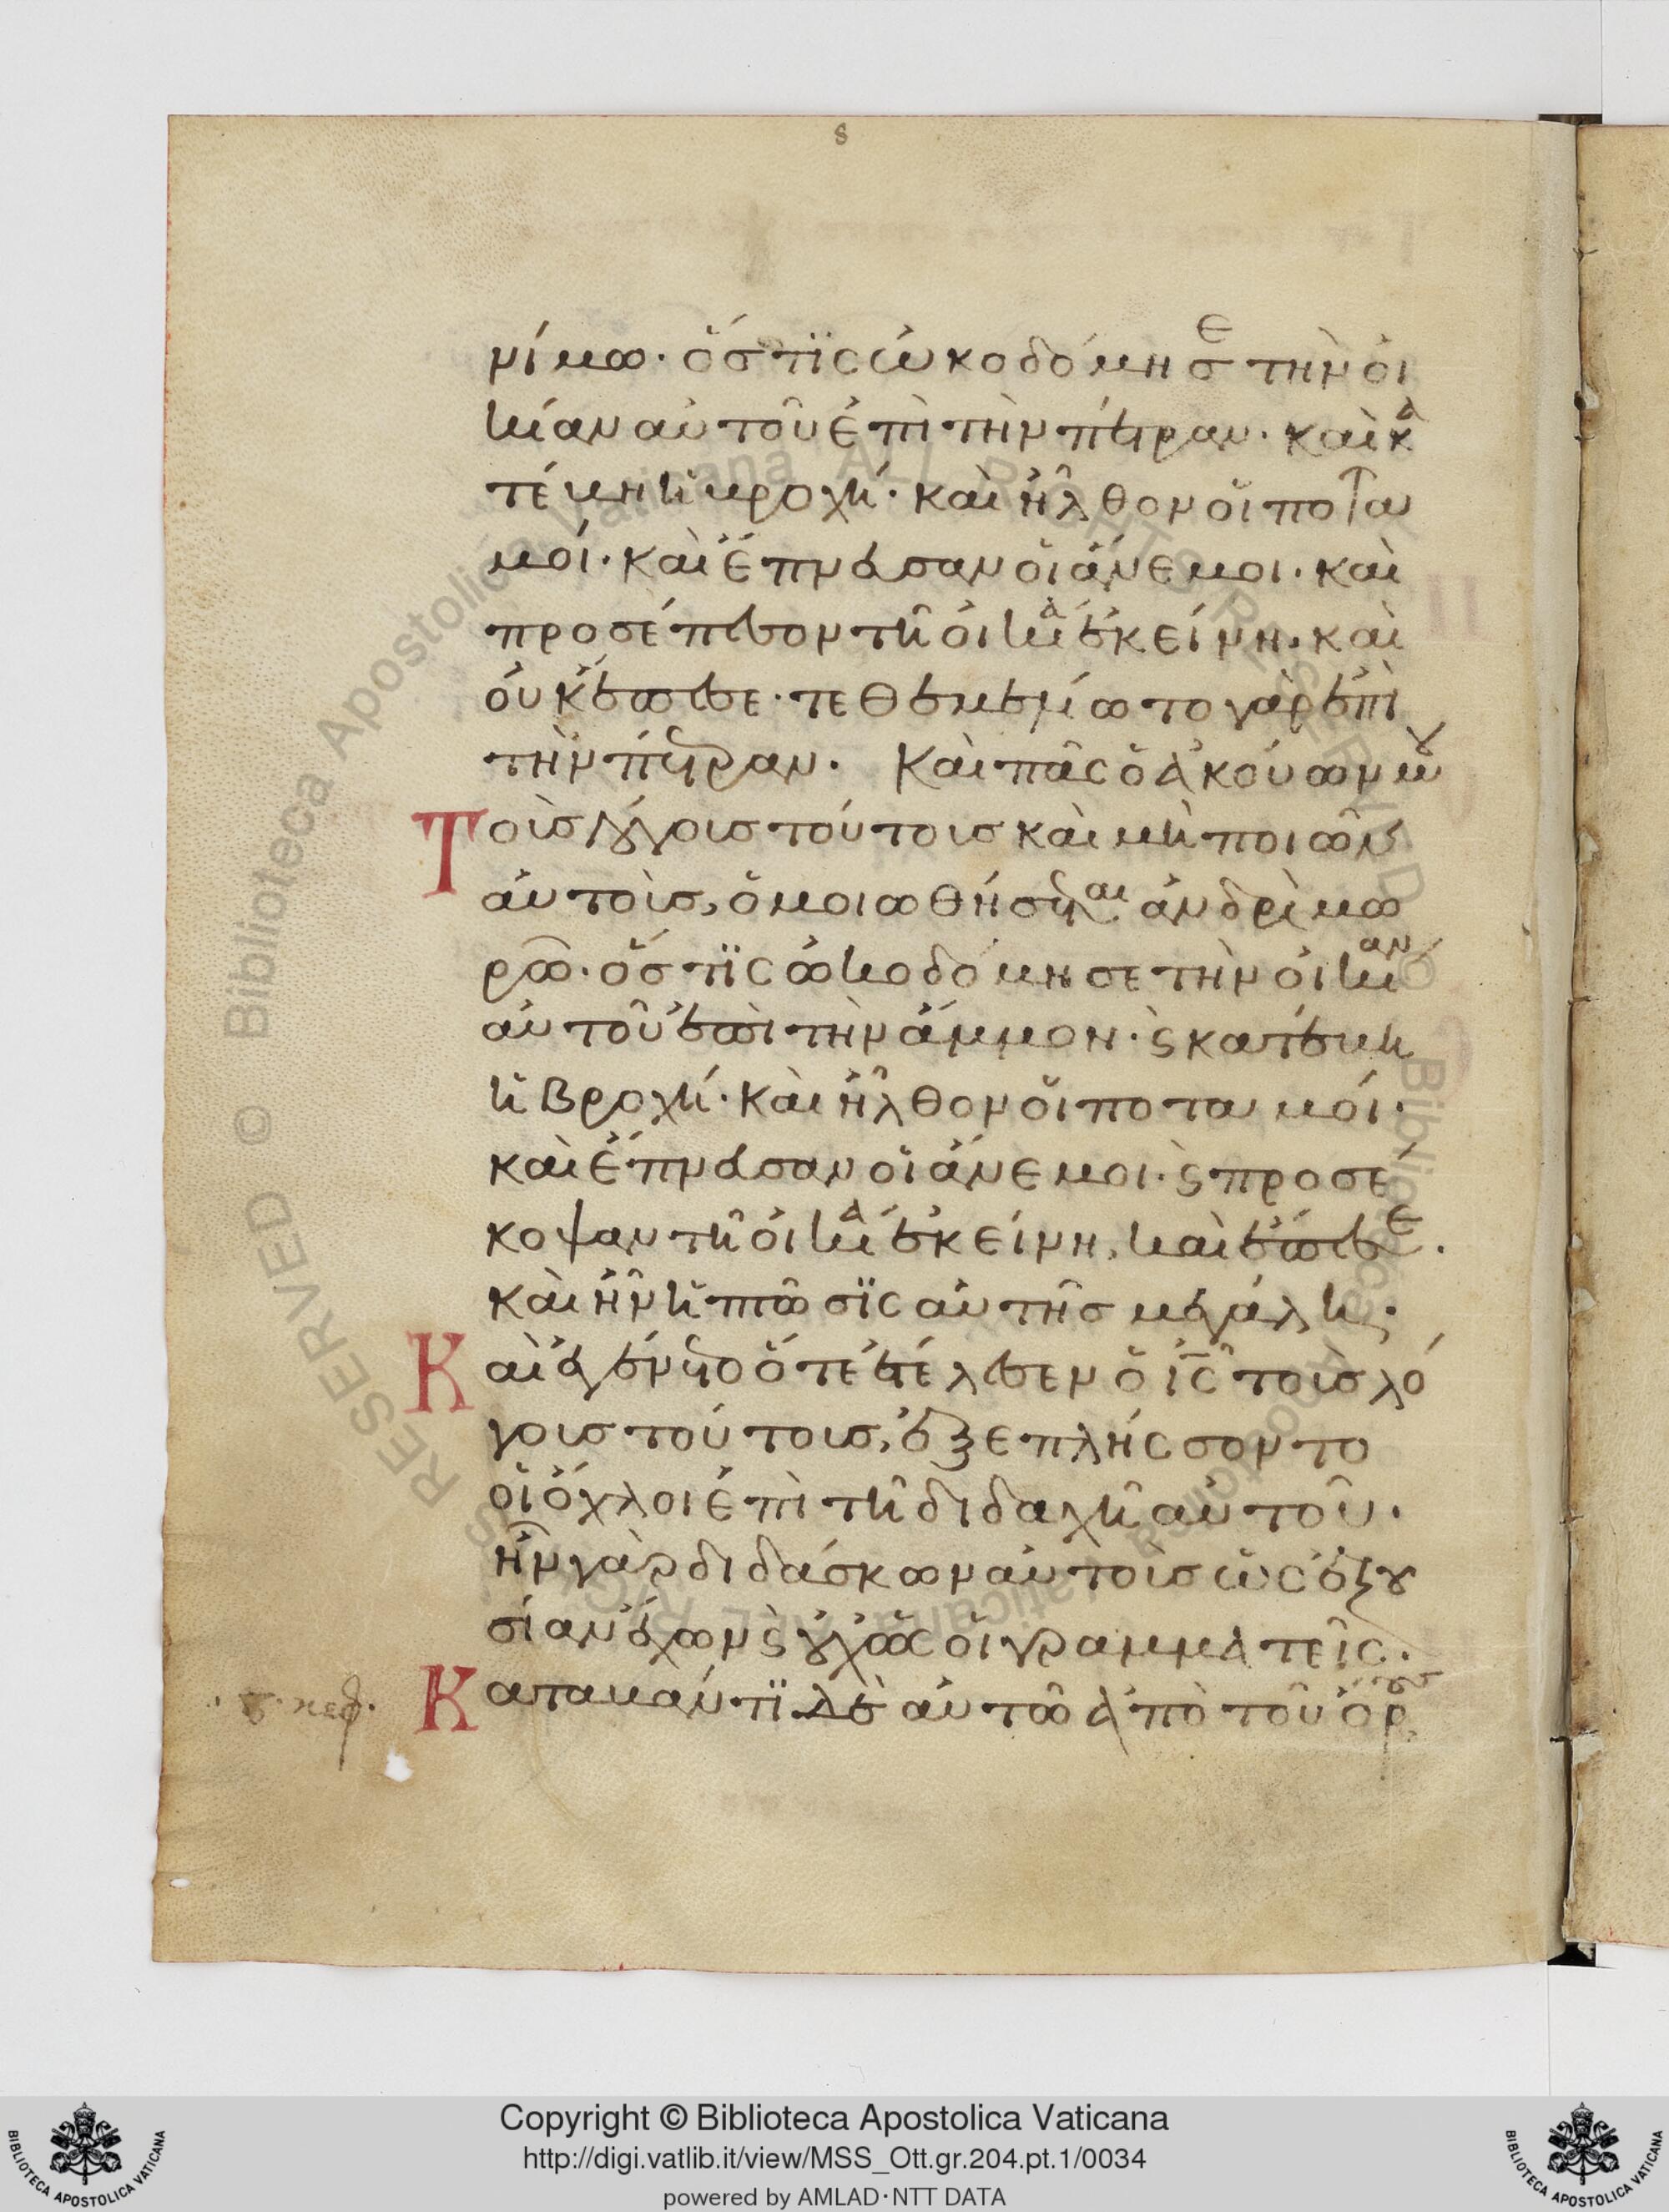 s
νίμω· ὅστϊς ὠκοδόμησε τὴν οἰ
κίαν αὐτοῦ ἐπὶ τὴν πέτραν· καὶ κα
τέβη ἡ βροχή· καὶ ἦλθον οἱ ποτα
μοί· καὶ ἔπνευσαν οἱ ἄνεμοι· καὶ
προσέπεσον τῆ οἰκία ἐκείνη, καὶ
οὐκ ἔπεσε· τεθεμεμίωτο γὰρ ἐπὶ
τὴν πέτραν· Καὶ πᾶς ὁ ἀκούων μου
Τοὺσ λόγουσ τούτουσ καὶ μὴ ποιῶν
αὐτοὺσ, ὁμοιωθήσεται ἀνδρὶ μω
ρῶ· ὅστϊς ὠκοδόμησε τὴν οἰκίαν
αὐτοῦ ἐπὶ τὴν ἄμμον· ϛ κατέβη
ἡ βροχή· καὶ ἦλθον οἱ ποταμοί·
καὶ ἔπνευσαν οἱ ἄνεμοι· ϛ προσέ
κοψαν τῆ οἰκία ἐκείνη, καὶ ἔπεσε·
καὶ ἦν ἡ πτῶσϊς αὐτῆσ μεγάλη·
Καὶ ἐγένετο ὅτε ἐτέλεσεν ὁ ις τοὺσ λό
γουσ τούτουσ, ἐξεπλήσσοντο
οἱ ὄχλοι ἐπὶ τῆ διδαχῆ αὐτοῦ·
ἦν γὰρ διδάσκων αὐτοὺσ ὡς ἐξου
σίαν ἔχων ϛ οὐχ ὡς οἱ γραμματεῖς·
Καταβάντϊ δὲ αὐτῶ ἀπὸ τοῦ ὄρουσ
κεφ·
Copyright © Biblioteca Apostolica Vaticana
http://digi.vatlib.it/view/MSS_Ott.gr.204.pt.1/0034
powered by AMLAD·NTT DATA
BIBLIOTECA APOSTOLICA VATICANA
BIBLIOTECA APOSTOLICA VATICANA